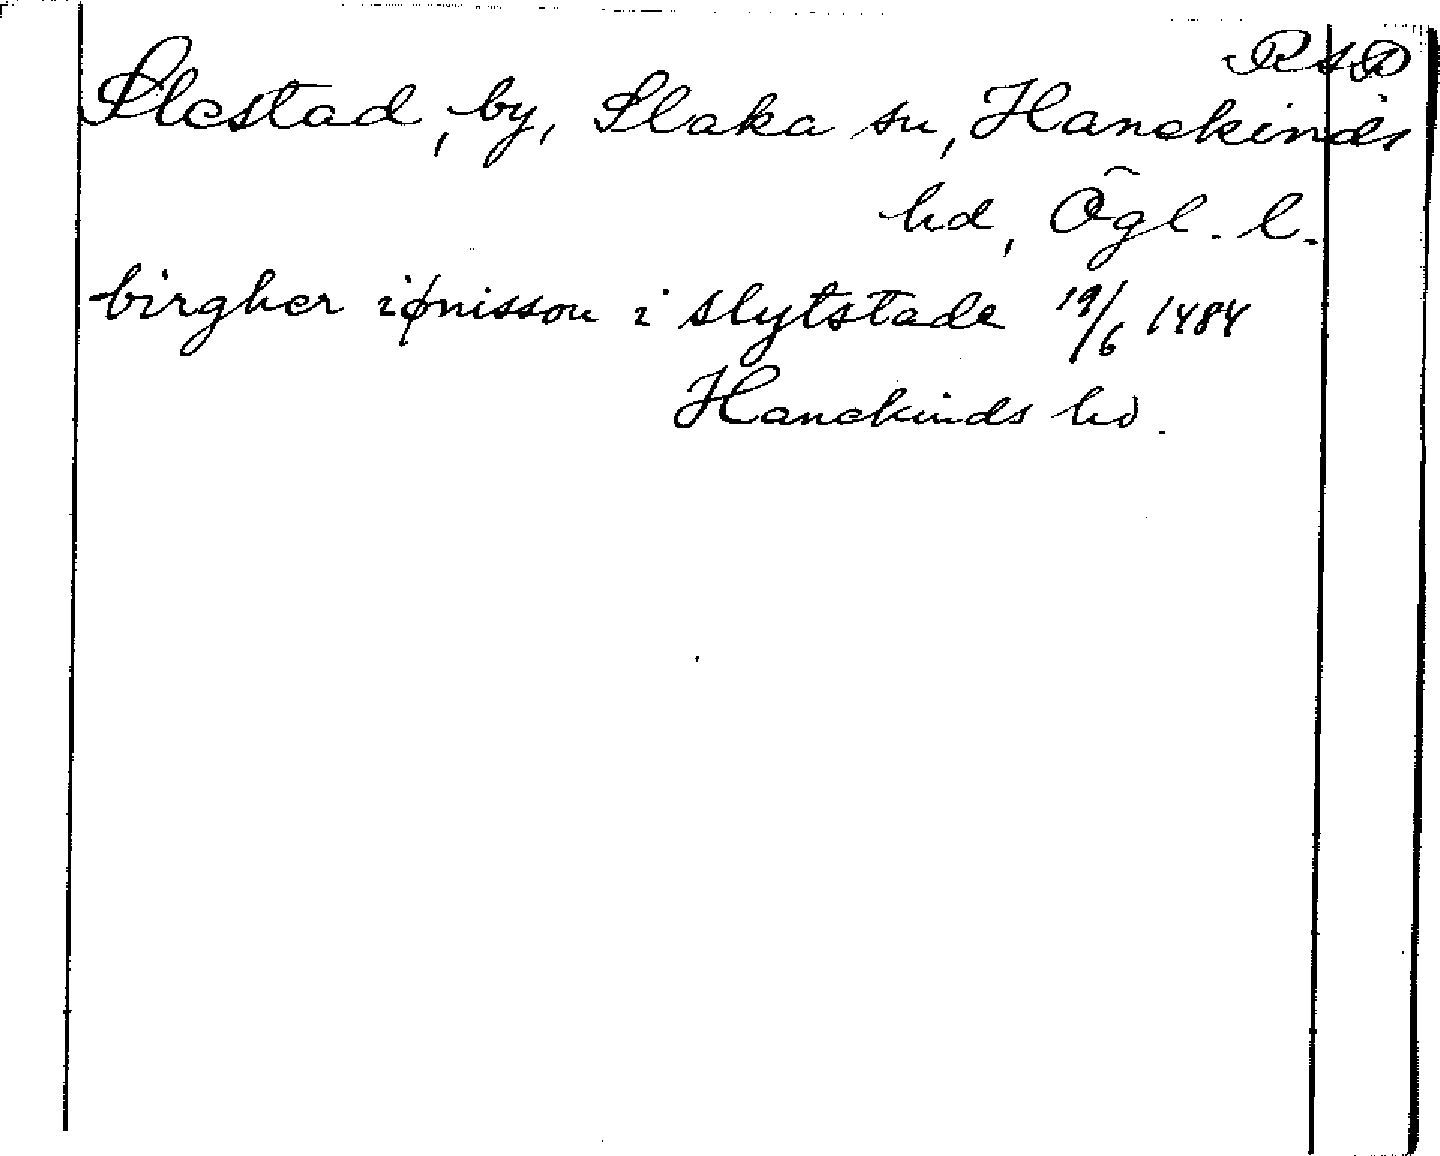 RAP
Slestad, by, Slaka sn, Hanekinds
hd, Ögl. l.
birgher iønisson i slytstade 19/6 1484
Hanekinds hd.